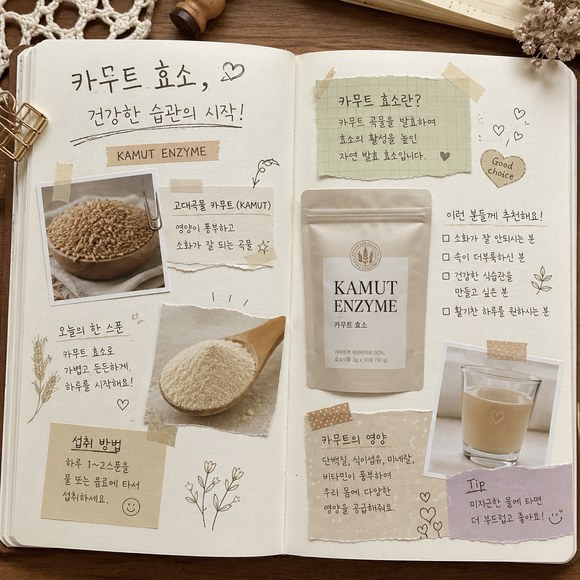 카무트 효소,
건강한 습관의 시작!
KAMUT ENZYME
고대곡물 카무트 (KAMUT)
영양이 풍부하고
소화가 잘 되는 곡물
오늘의 한 스푼
카무트 효소로
가볍고 든든하게,
하루를 시작해요!
섭취 방법
하루 1~2스푼을
물 또는 음료에 타서
섭취하세요.
카무트 효소란?
카무트 곡물을 발효하여
효소의 활성을 높인
자연 발효 효소입니다.
Good
choice
KAMUT
ENZYME
카무트 효소
이런 분들께 추천해요!
소화가 잘 안되시는 분
속이 더부룩하신 분
건강한 식습관을
만들고 싶은 분
활기찬 하루를 원하시는 분
카무트의 영양
단백질, 식이섬유, 미네랄,
비타민이 풍부하여
우리 몸에 다양한
영양을 공급해줘요.
Tip
미지근한 물에 타면
더 부드럽고 좋아요!